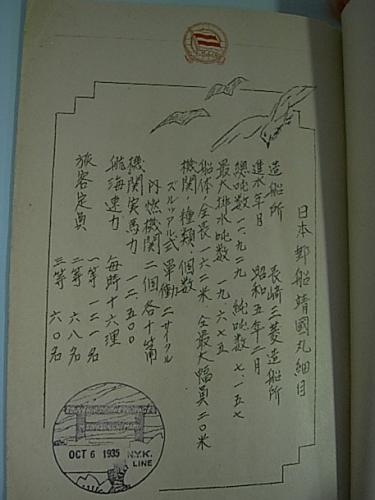 日本郵船靖國丸細目
造船所 長崎三菱造船所
進水年月 昭和五年二月
總噸数 一一、九二九 純噸数 七、一五七
最大排水噸数 一九、六七五
船体、全長 一六二米、全最大幅員 二〇米
機関、種類、個数
ズルツアル式 単働二サイクル
内燃機関 二個各十筩
機関実馬力 一二、五〇〇
航海速力 毎時十六浬
旅客定員 一等 一二一名
二等 六八名
三等 六〇名
OCT 6 1935 N.Y.K. LINE